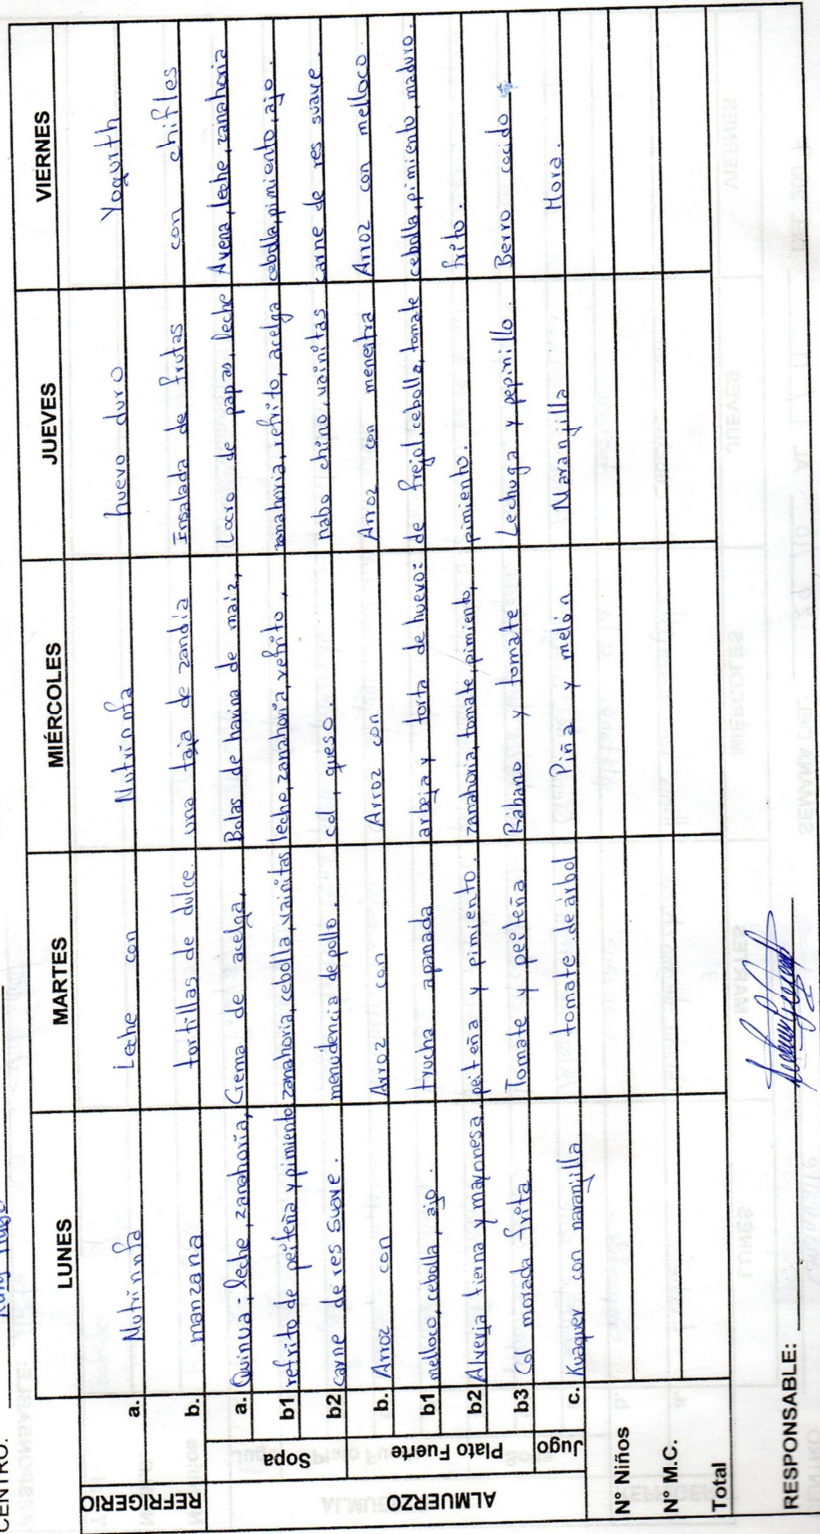 CENTRO:
LUNES MARTES MIÉRCOLES JUEVES VIERNES
REFRIGERIO a. Nutrinnfa Leche con Nutrinnfa huevo duro Yogurth
b. manzana tortillas de dulce. una taja de zandía Ensalada de frutas con chifles
ALMUERZO Sopa a. Quinua: leche, zanahoria, Crema de acelga, Bolas de harina de maiz, Locro de papas, leche Avena, leche, zanahoria
b1 refrito de peiteña y pimiento zanahoria, cebolla, vainitas leche, zanahoria, refrito, zanahoria, refrito, acelga cebolla, pimiento, ajo.
b2 carne de res suave. menudencia de pollo. col, queso. nabo chino, vainitas carne de res suave.
Plato Fuerte b. Arroz con Arroz con Arroz con Arroz con menestra Arroz con melloco.
b1 melloco, cebolla, ajo. trucha apanada arbeja y torta de huevo: de frejol, cebolla, tomate cebolla, pimiento, maduro.
b2 Alverja tierna y mayonesa. peiteña y pimiento. zanahoria, tomate, pimiento, pimiento. frito.
b3 Col morada frita. Tomate y peiteña Rábano y tomate Lechuga y pepinillo. Berro cocido
Jugo c. Kuaquer con naranjilla tomate de árbol Piña y melón Naranjilla Mora.
N° Niños
N° M.C.
Total
RESPONSABLE: